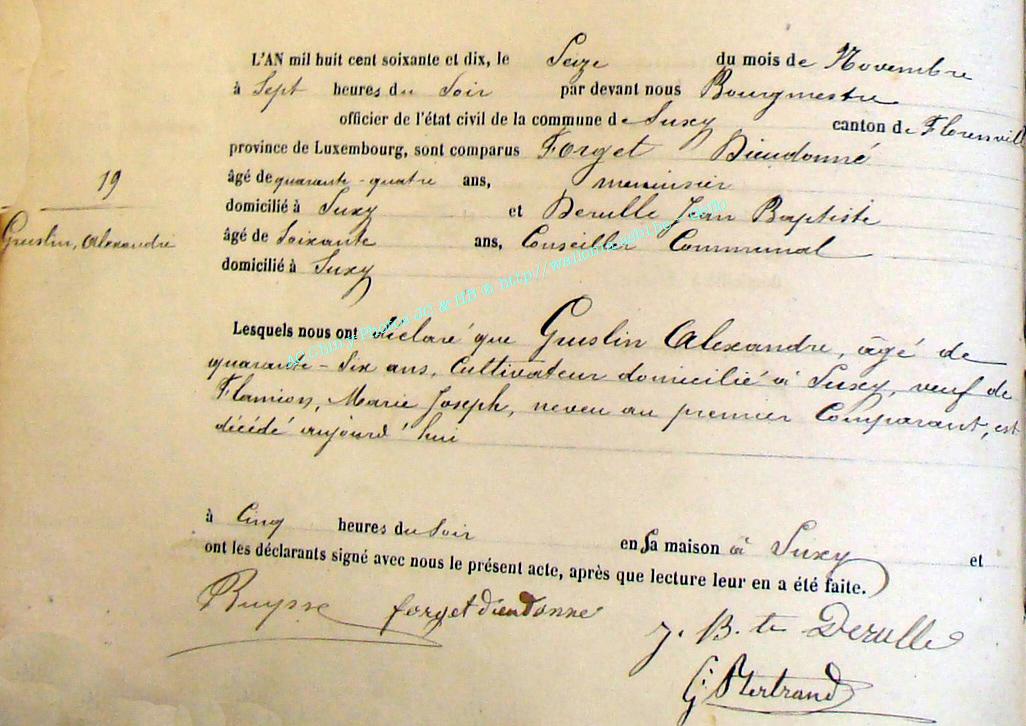 L'AN mil huit cent soixante et dix, le Seize du mois de Novembre
à Sept heures du Soir par devant nous Bourgmestre
officier de l'état civil de la commune de Suxy canton de Florenville
province de Luxembourg, sont comparus Forget Dieudonné
âgé de quarante-quatre ans, menuisier
domicilié à Suxy et Derulle Jean Baptiste
âgé de Soixante ans, Conseiller Communal
domicilié à Suxy
19
Gruslin, Alexandre
Lesquels nous ont déclaré que Gruslin Alexandre, âgé de
quarante-Six ans, Cultivateur domicilié à Suxy, veuf de
Flamion, Marie Joseph, neveu au premier Comparant, est
décédé aujourd'hui
à Cinq heures du Soir en sa maison à Suxy et
ont les déclarants signé avec nous le présent acte, après que lecture leur en a été faite.
forget dieudonne
J. B. te Derulle
Bertrand